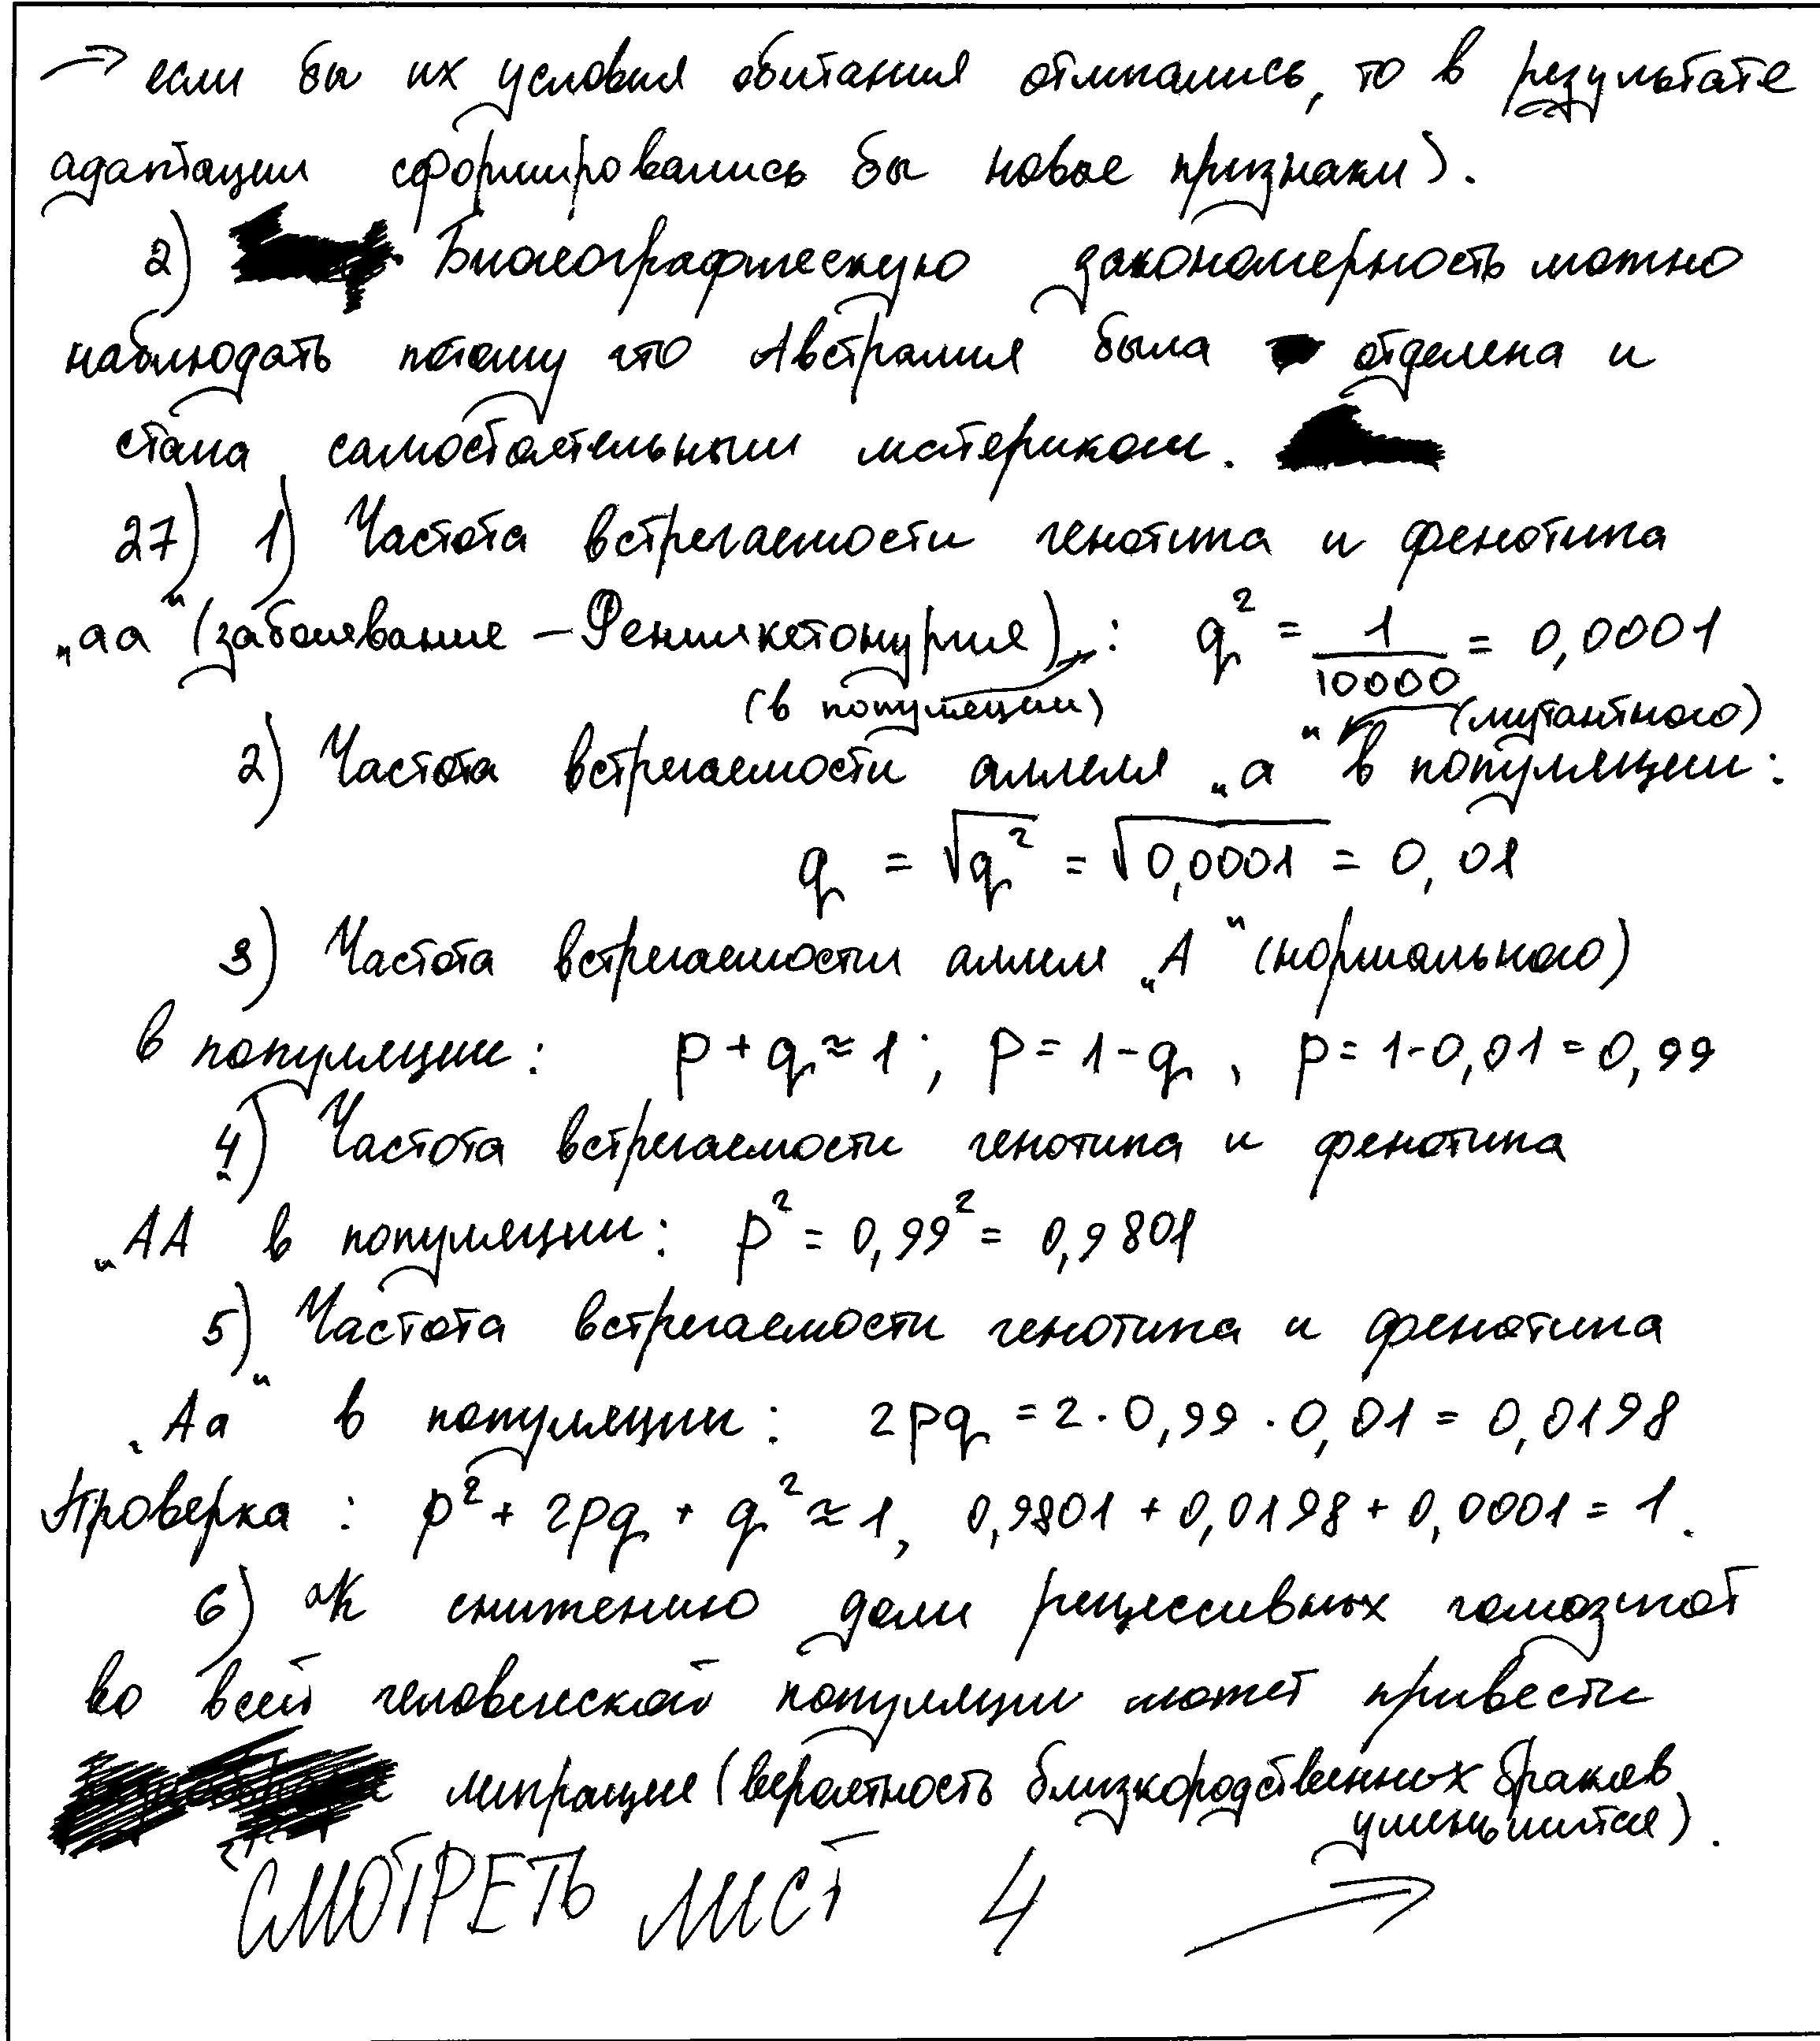 → если бы их условия обитания отличались, то в результате
адаптации сформировались бы новые признаки).
2) Биогеографическую закономерность можно
наблюдать потому что Австралия была отделена и
стала самостоятельным материком.
27) 1) Частота встречаемости генотипа и фенотипа
„аа“ (заболевание – Фенилкетонурия) : q² = 1/10000 = 0,0001
(в популяции)
(мутантного)
2) Частота встречаемости аллеля „а“ в популяции:
q = √q² = √0,0001 = 0,01
3) Частота встречаемости аллеля „А“ (нормального)
в популяции: p + q ≈ 1; p = 1 - q, p = 1 - 0,01 = 0,99
4) Частота встречаемости генотипа и фенотипа
„АА в популяции: p² = 0,99² = 0,9801
5) Частота встречаемости генотипа и фенотипа
„Аа“ в популяции: 2pq = 2 · 0,99 · 0,01 = 0,0198
Проверка : p² + 2pq + q² ≈ 1, 0,9801 + 0,0198 + 0,0001 = 1.
6) К снижению доли рецессивных гомозигот
во всей человеческой популяции может привести
миграция (вероятность близкородственных браков
уменьшится).
СМОТРЕТЬ ЛИСТ 4 →